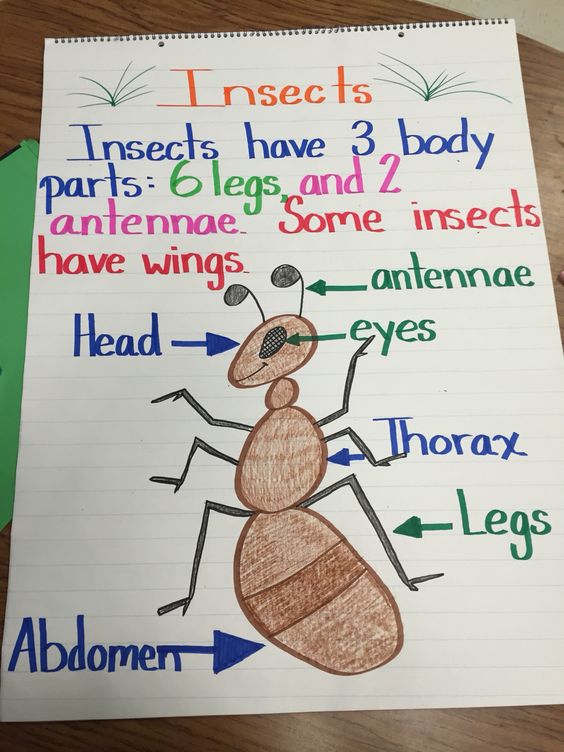 Insects
Insects have 3 body
parts: 6 legs, and 2
antennae. Some insects
have wings.
antennae
Head
eyes
Thorax
Legs
Abdomen